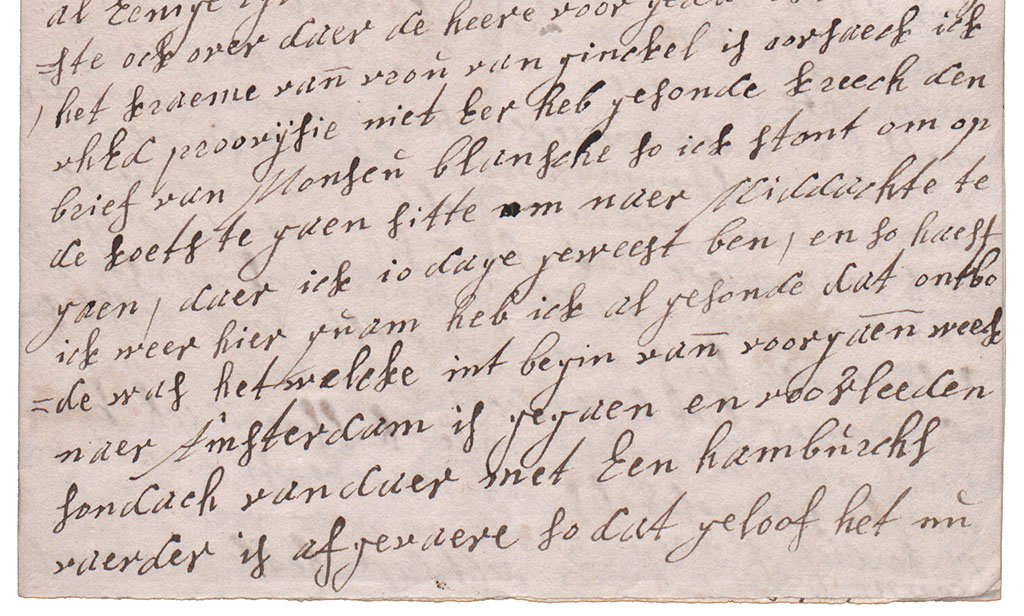 al Eenige
=ste ock over daer de heere voor
, het kraeme van̄ vroŭ van ginckel is oorsaeck ick
UhEd provijsie niet Eer heb gesonde kreech den
brief van Monseŭ blansche so ick stont om op
de koets te gaen sitte om naer Middachte te
gaen, daer ick 10 dage geweest ben, en so haest
ick weer hier quam heb ick al gesonde dat ontbo
=de was het welcke int begin van̄ voorgaen̄ weeck
naer Amsterdam is gegaen en voorleeden
sondach vandaer met Een hambŭrchs
vaerder is af gevaere so dat geloof het nŭ